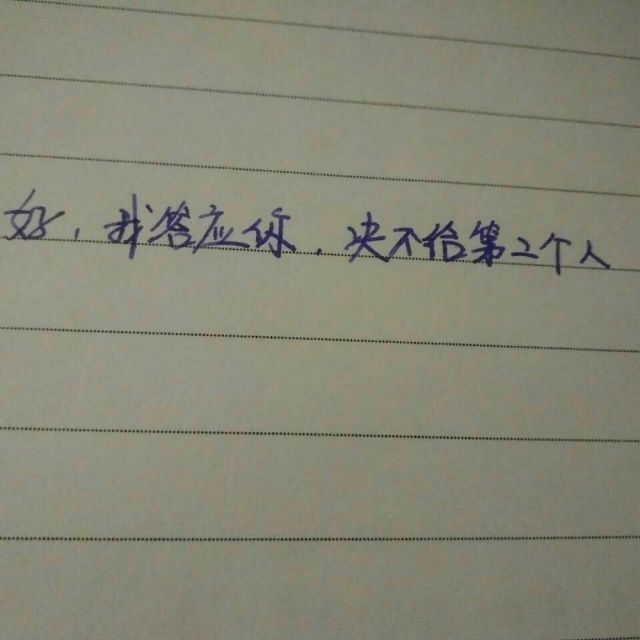 好，我答应你，决不给第二个人